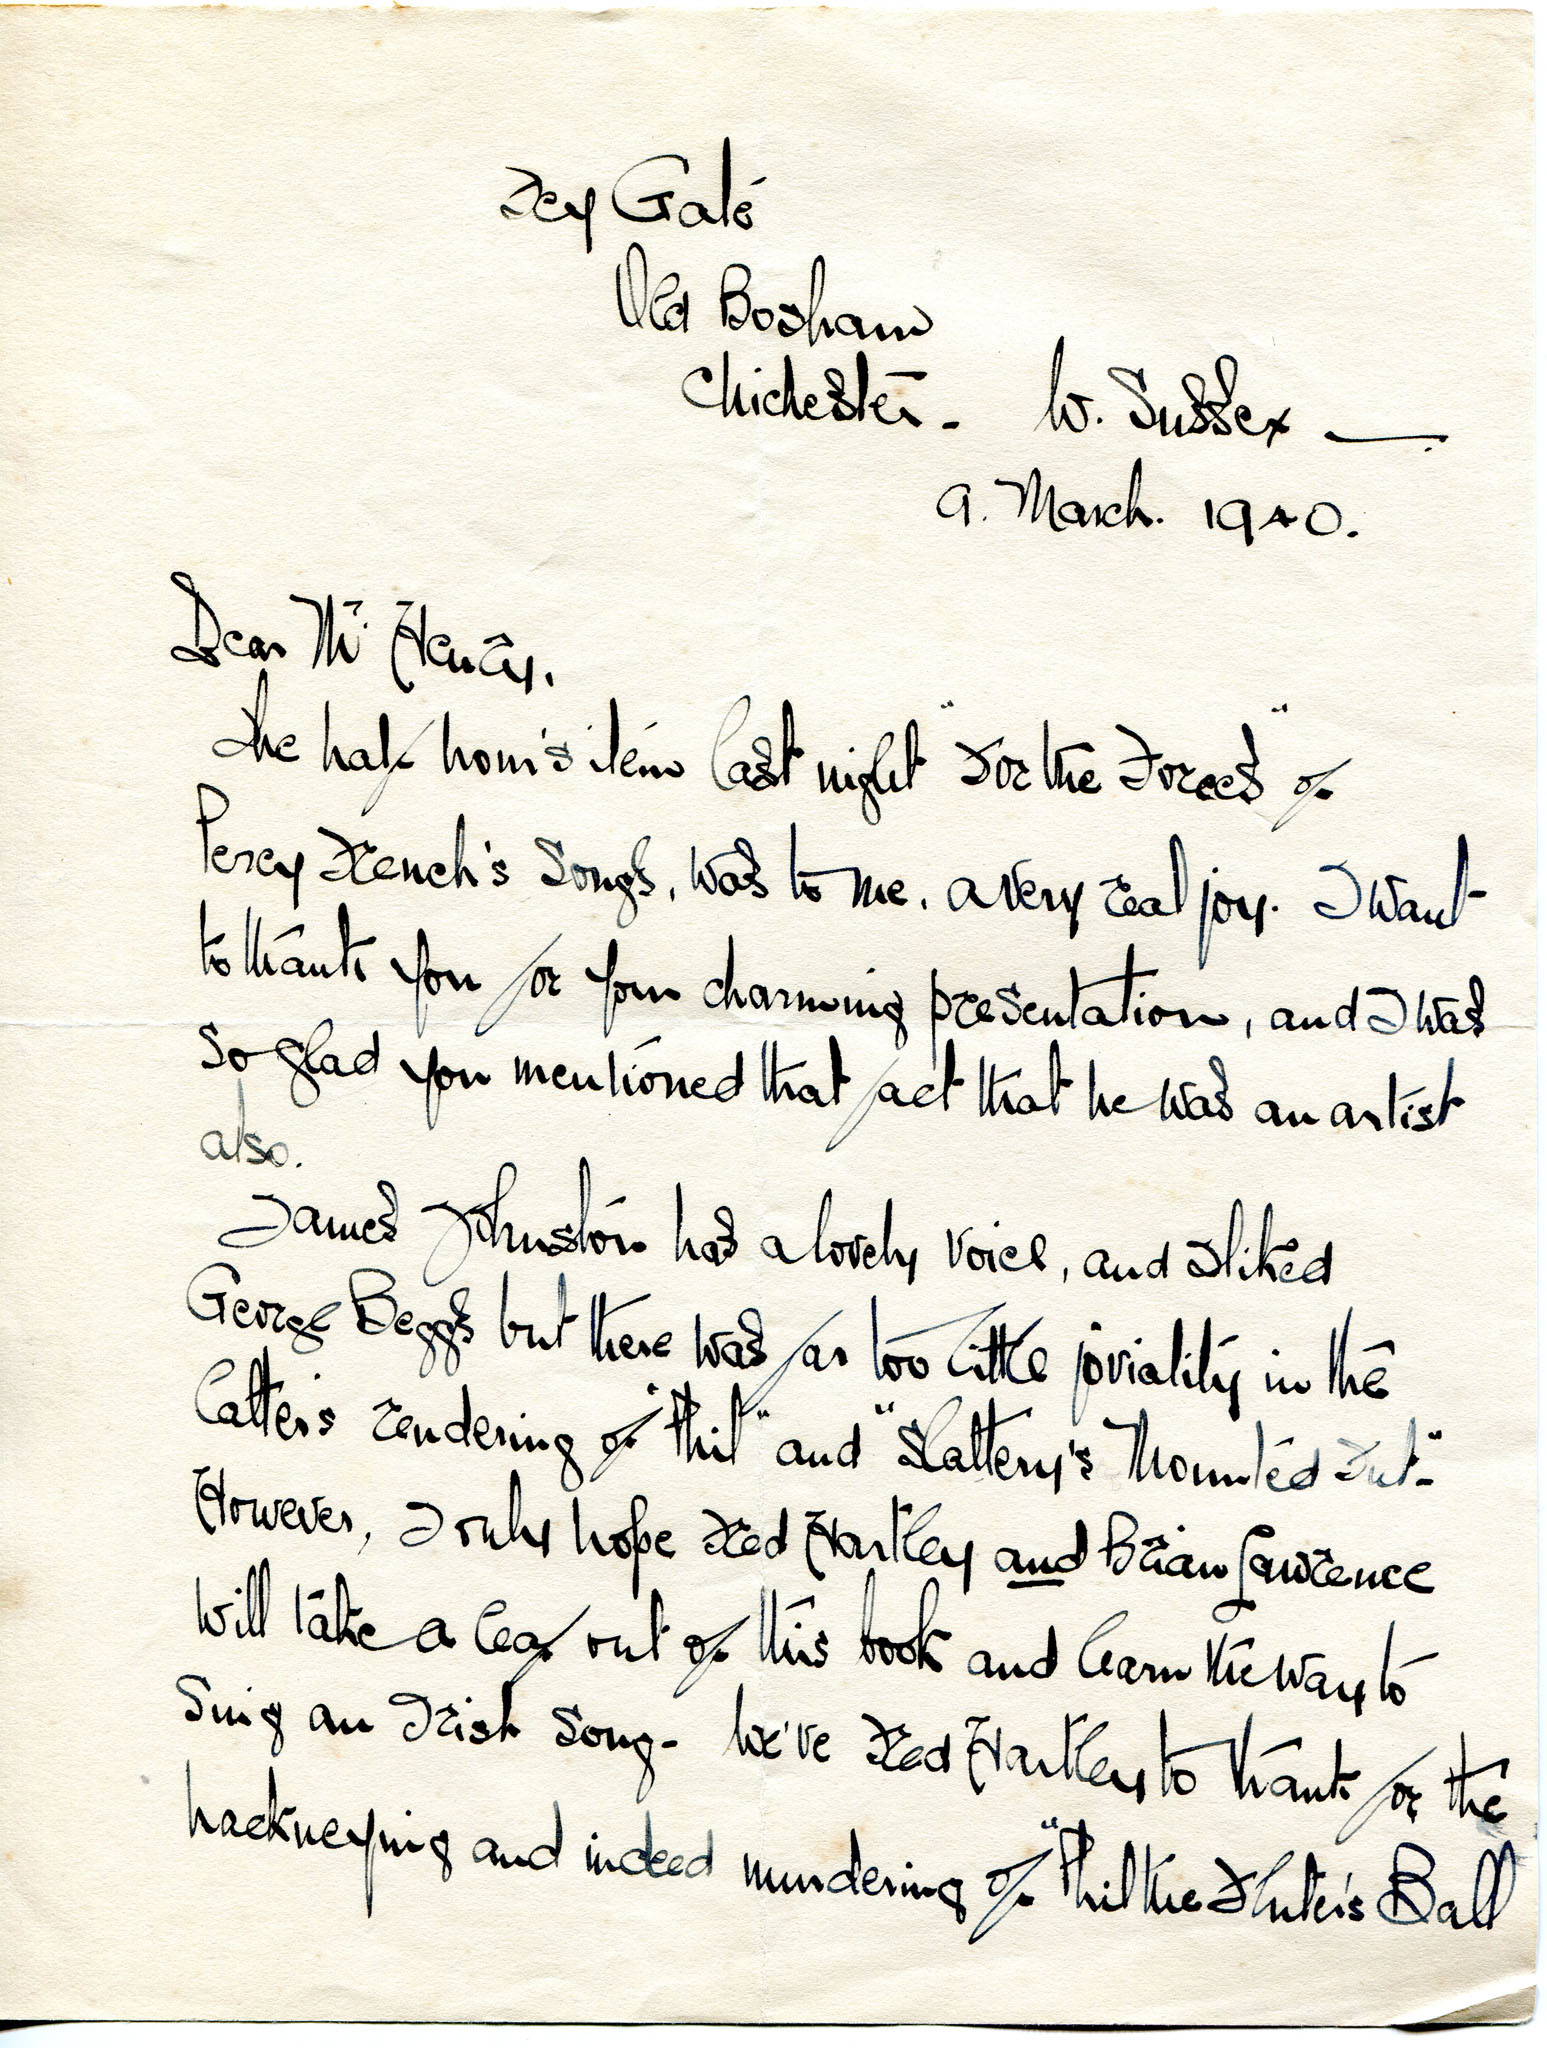 Fey Gate
Old Bosham
Chichester - W. Sussex —
9. March. 1940.
Dear Mr. Henry,
The half hour's item last night "For the Forces" of
Percy French's Songs, was to me, a very real joy. I want
to thank you for your charming presentation, and I was
so glad you mentioned that fact that he was an artist
also.
James Johnston has a lovely voice, and I liked
George Beggs but there was far too little joviality in the
latter's rendering of "Phil" and "Slattery's Mounted Fut-"
However, I only hope Fred Hartley and Brian Lawrence
will take a leaf out of this book and learn the way to
sing an Irish song - We've Fred Hartley to thank for the
hackneying and indeed murdering of "Phil the Fluter's Ball